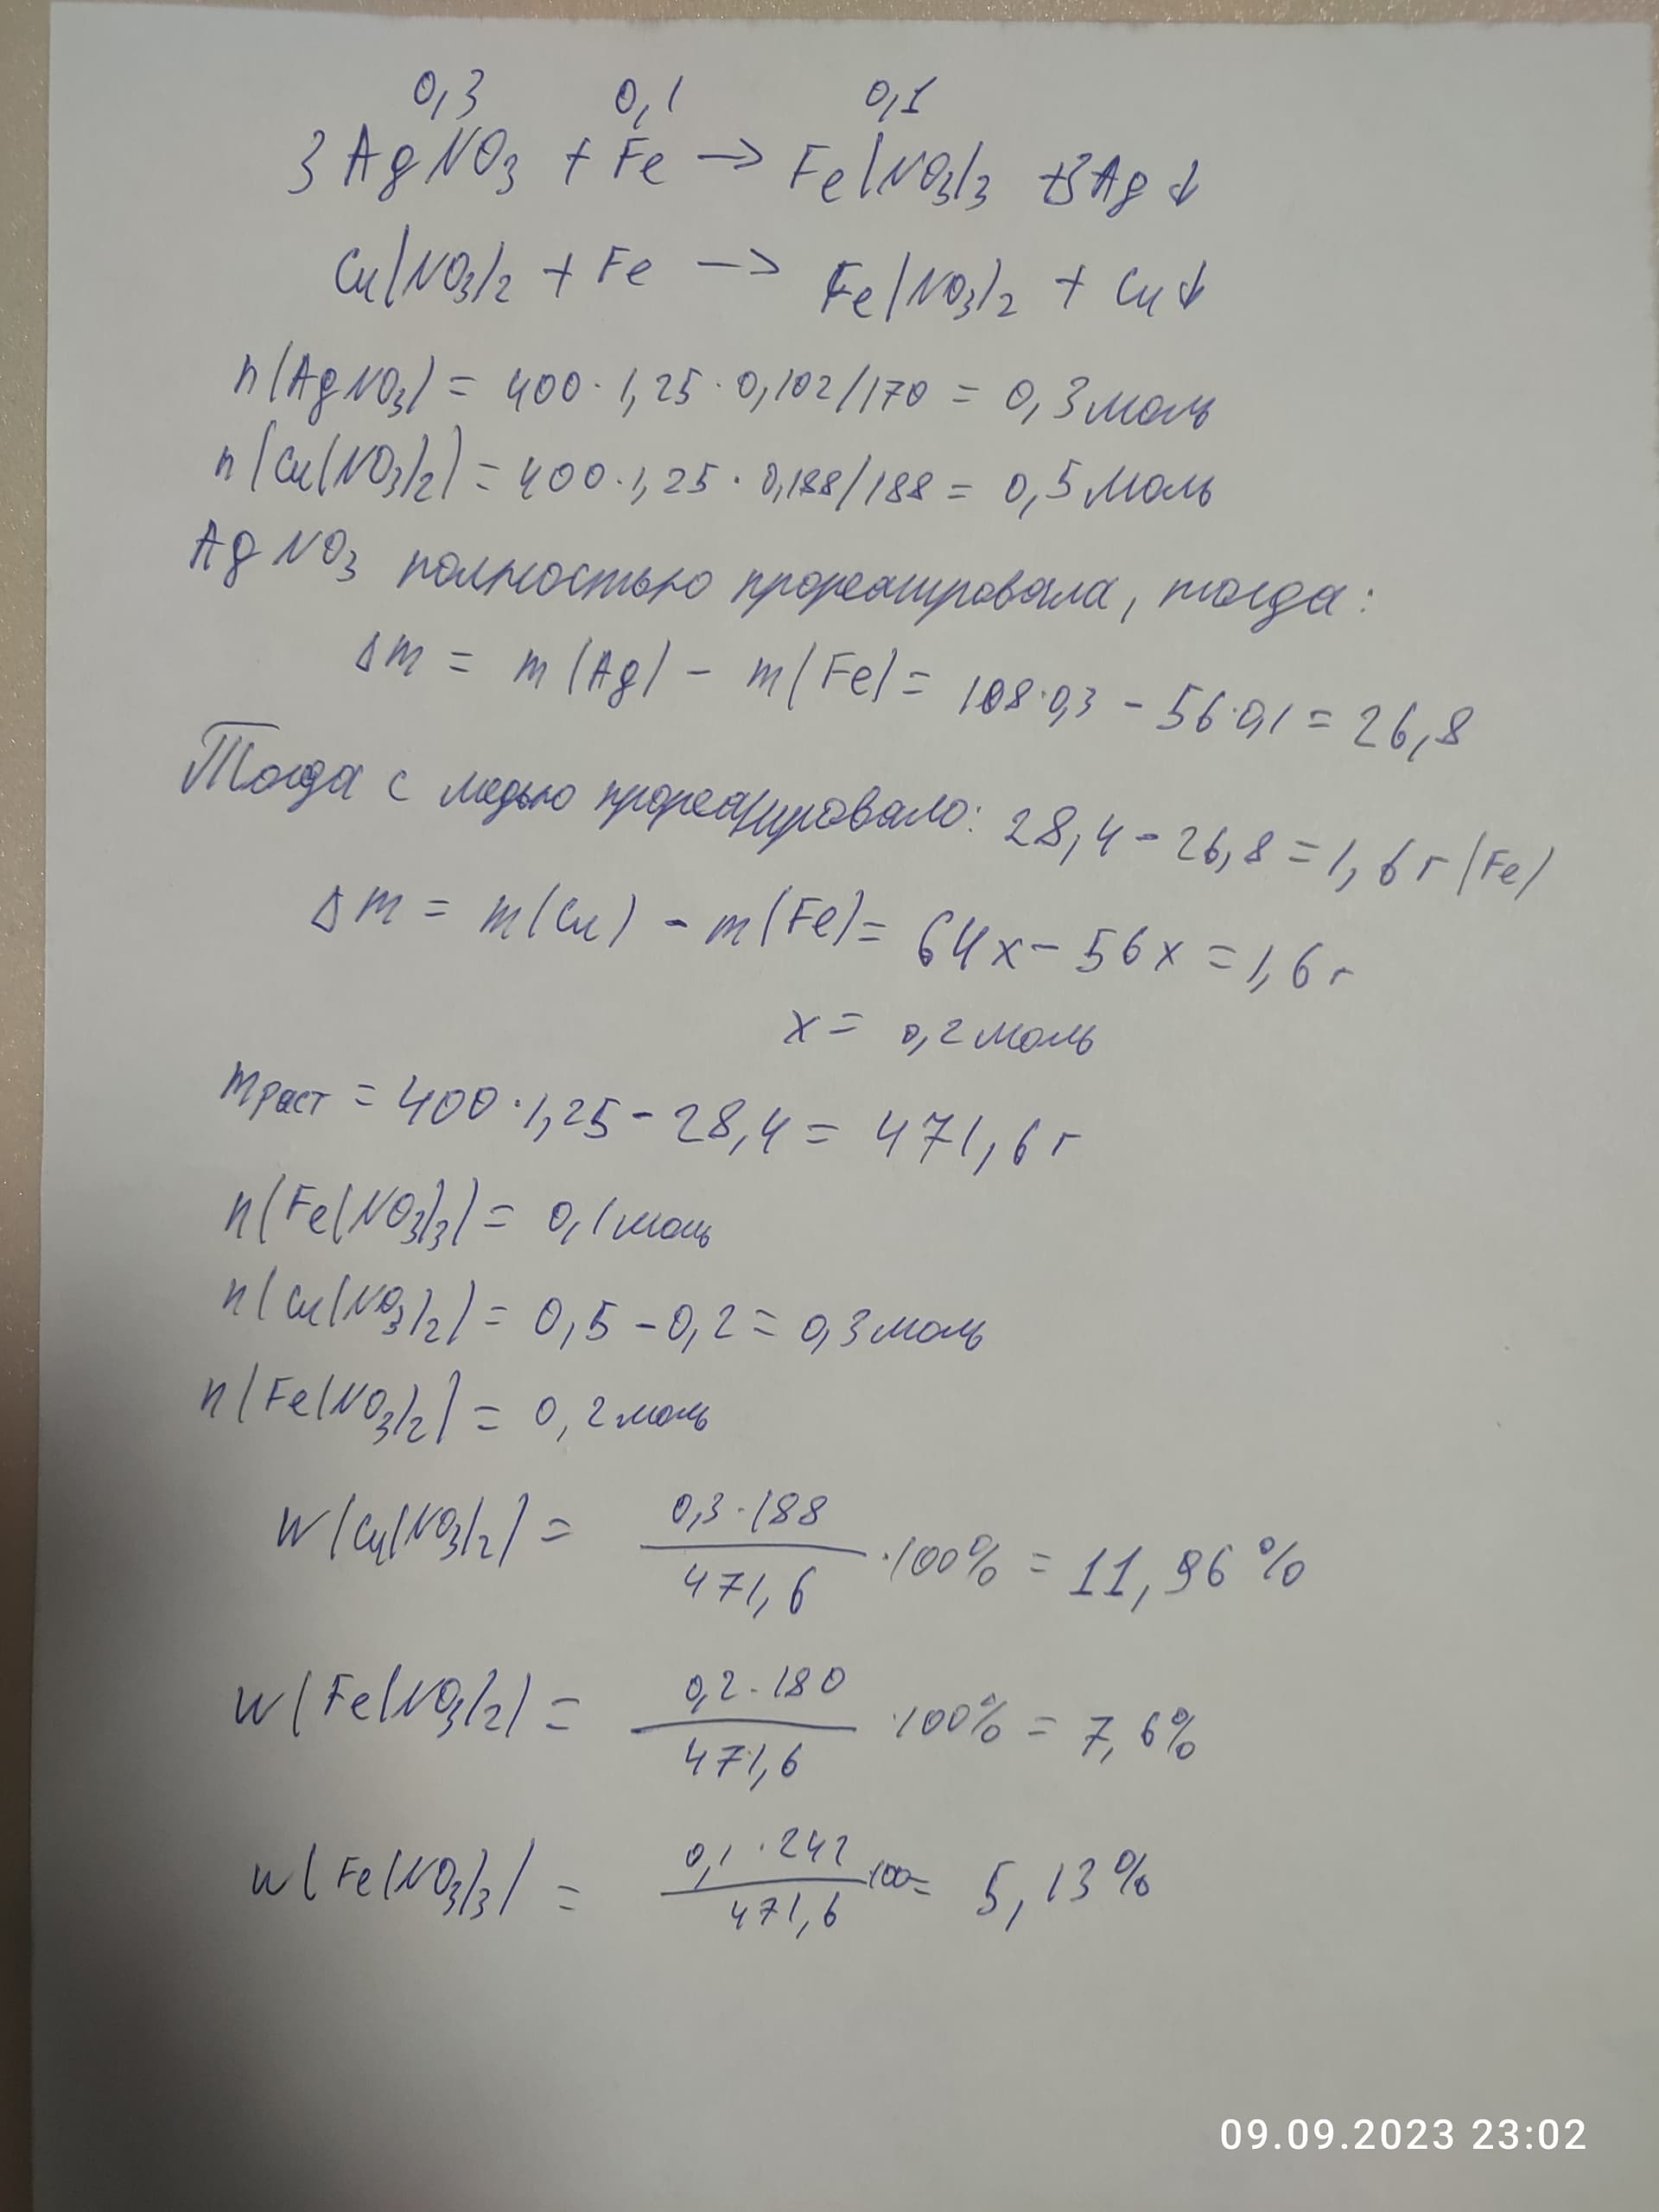 0,3 0,1 0,1
3AgNO3 + Fe → Fe(NO3)3 +3Ag↓
Cu(NO3)2 + Fe → Fe(NO3)2 + Cu↓
n(AgNO3) = 400·1,25·0,102/170 = 0,3моль
n(Cu(NO3)2) = 400·1,25·0,188/188 = 0,5моль
AgNO3 полностью прореагировала, тогда:
Δm = m(Ag) - m(Fe) = 108·0,3 - 56·0,1 = 26,8
Тогда с медью прореагировало: 28,4-26,8=1,6г(Fe)
Δm = m(Cu) - m(Fe) = 64x - 56x = 1,6г
x = 0,2моль
mраст = 400·1,25-28,4 = 471,6г
n(Fe(NO3)3) = 0,1моль
n(Cu(NO3)2) = 0,5-0,2 = 0,3моль
n(Fe(NO3)2) = 0,2моль
W(Cu(NO3)2) = 0,3·188 / 471,6 ·100% = 11,96%
W(Fe(NO3)2) = 0,2·180 / 471,6 ·100% = 7,6%
W(Fe(NO3)3) = 0,1·242 / 471,6 ·100= 5,13%
09.09.2023 23:02